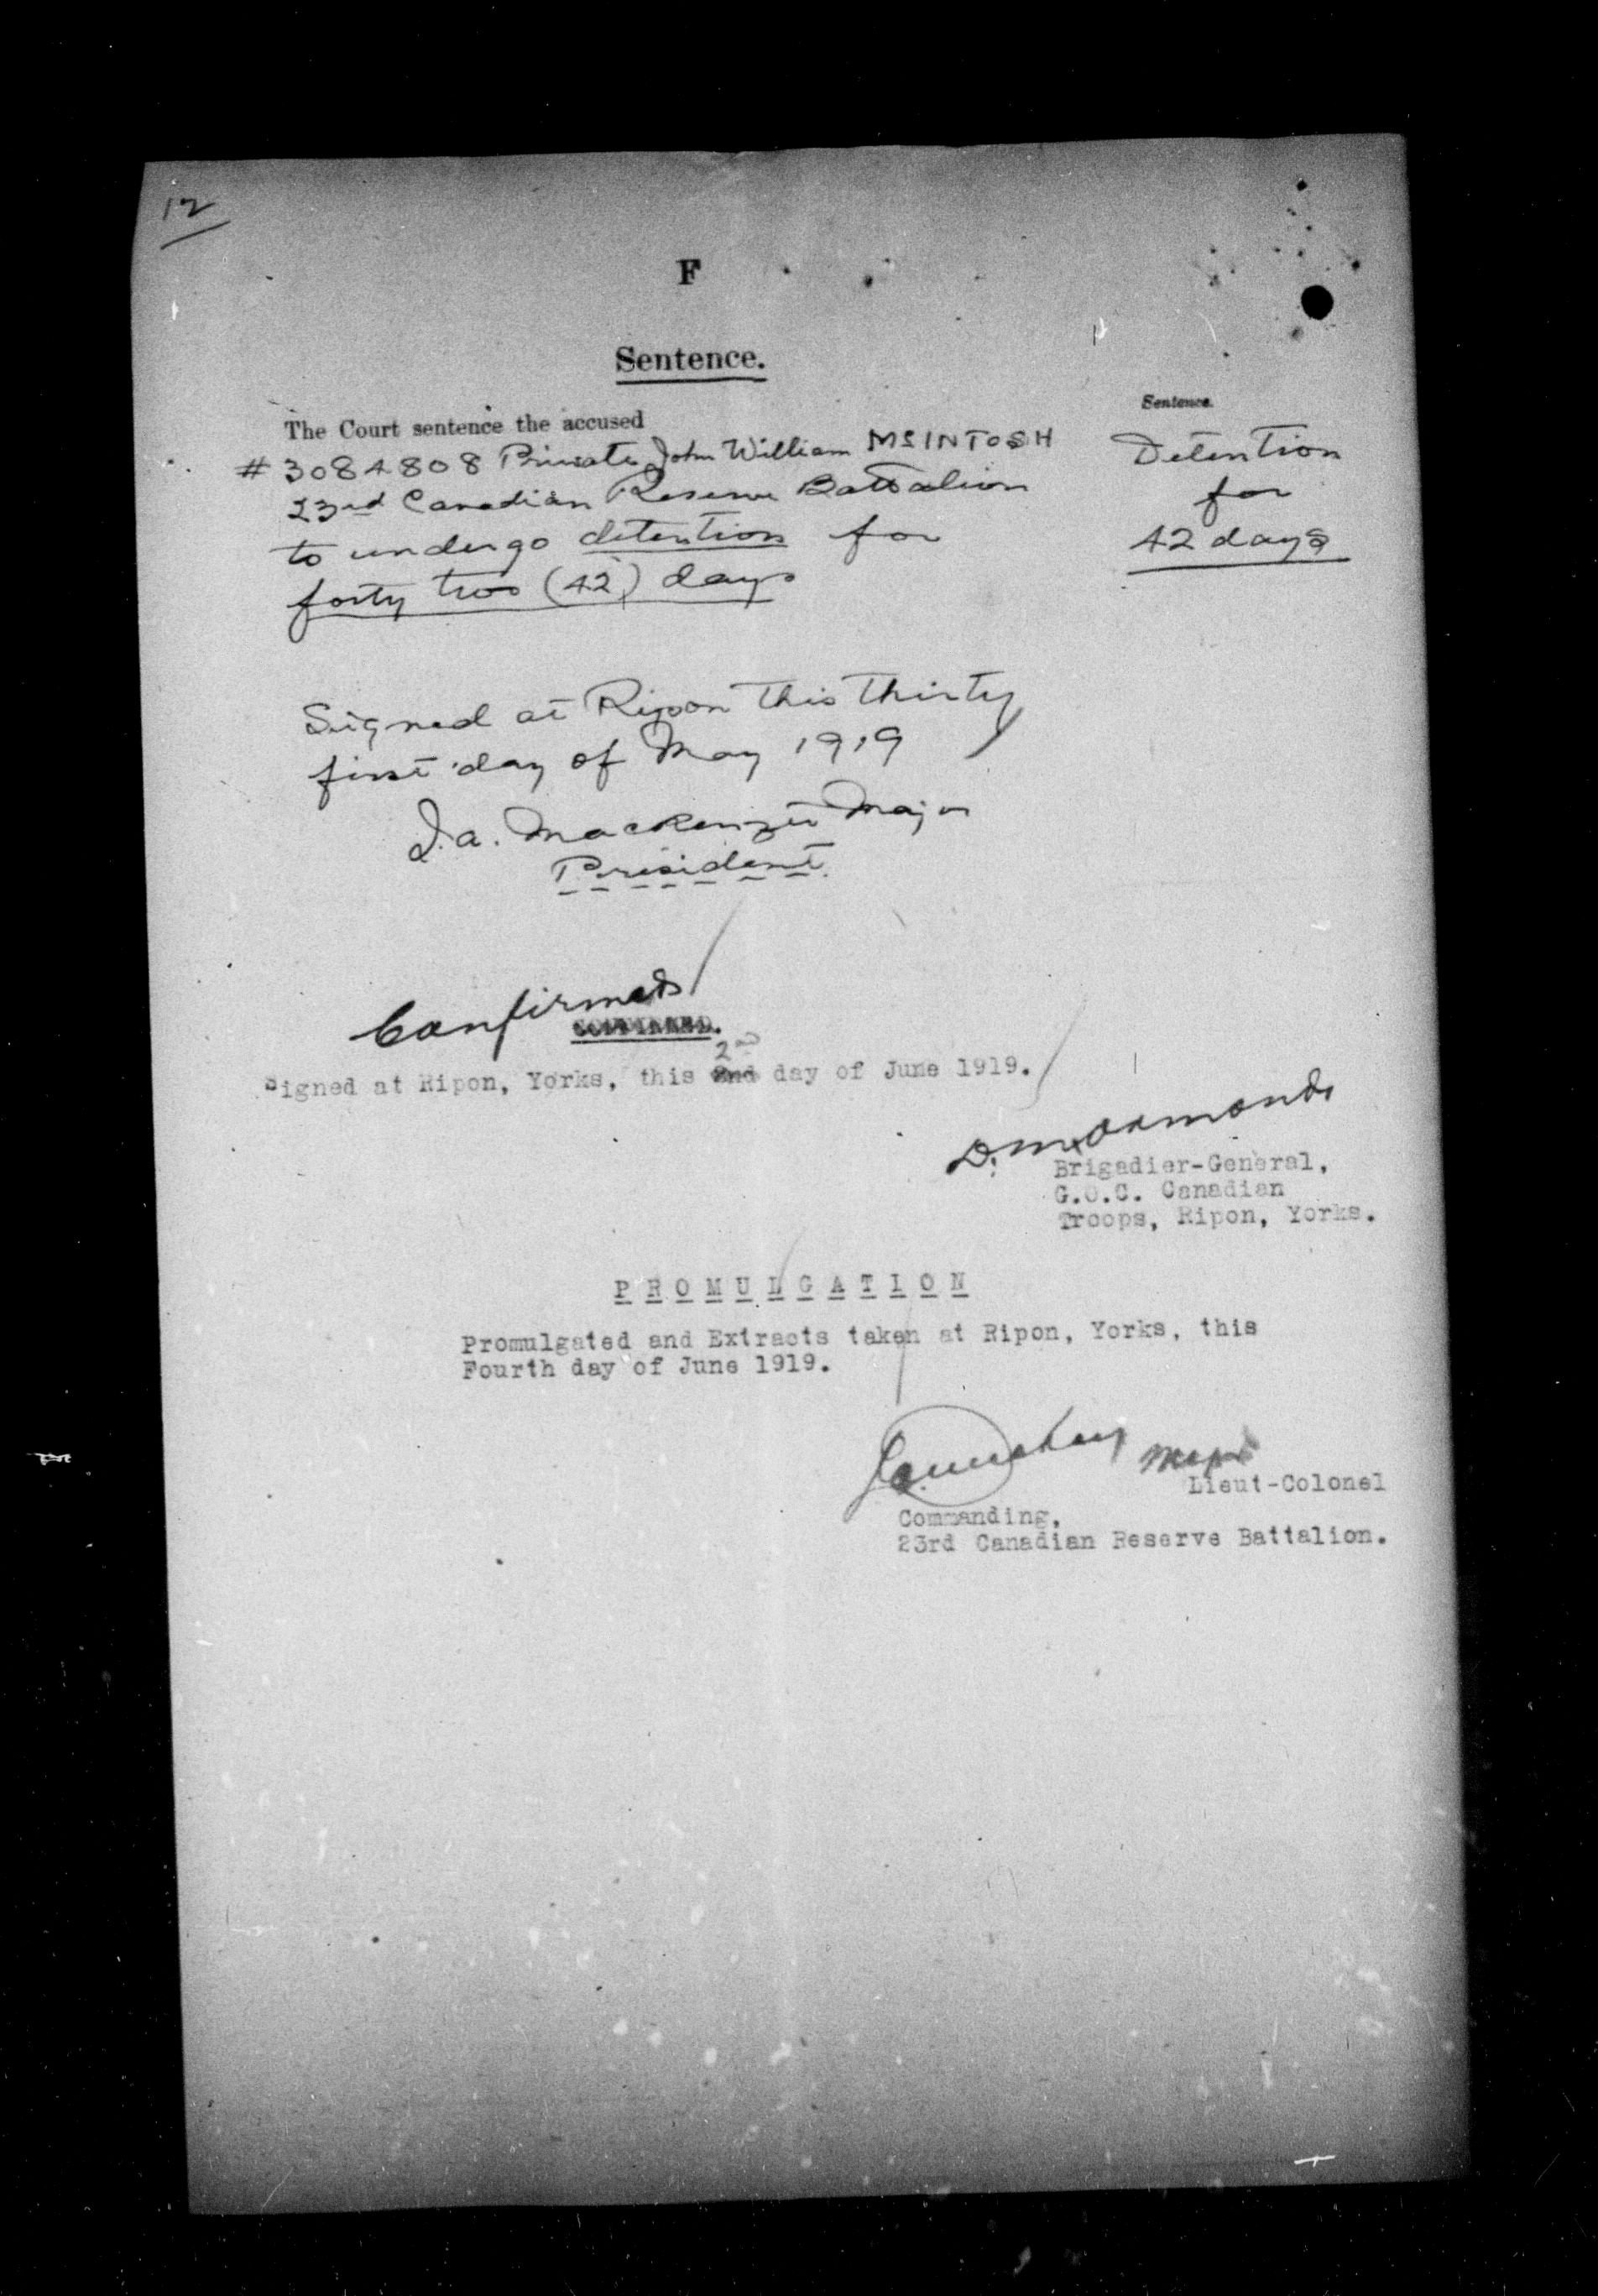 12
F
Sentence.
The Court sentence the accused
# 3084808 Private John William McINTOSH
23rd Canadian Reserve Battalion
to undergo detention for
forty two (42) days
Sentence.
Detention
for
42 days
Signed at Ripon this thirty
first day of May 1919
J.A. Mackenzie Major
President.
Confirmed
CONFIRMED.
2nd
Signed at Ripon, Yorks, this 2nd day of June 1919.
D.M. Ormond
Brigadier-General,
G.O.C. Canadian
Troops, Ripon, Yorks.
PROMULGATION
Promulgated and Extracts taken at Ripon, Yorks, this
Fourth day of June 1919.
Major
Lieut-Colonel
Commanding,
23rd Canadian Reserve Battalion.